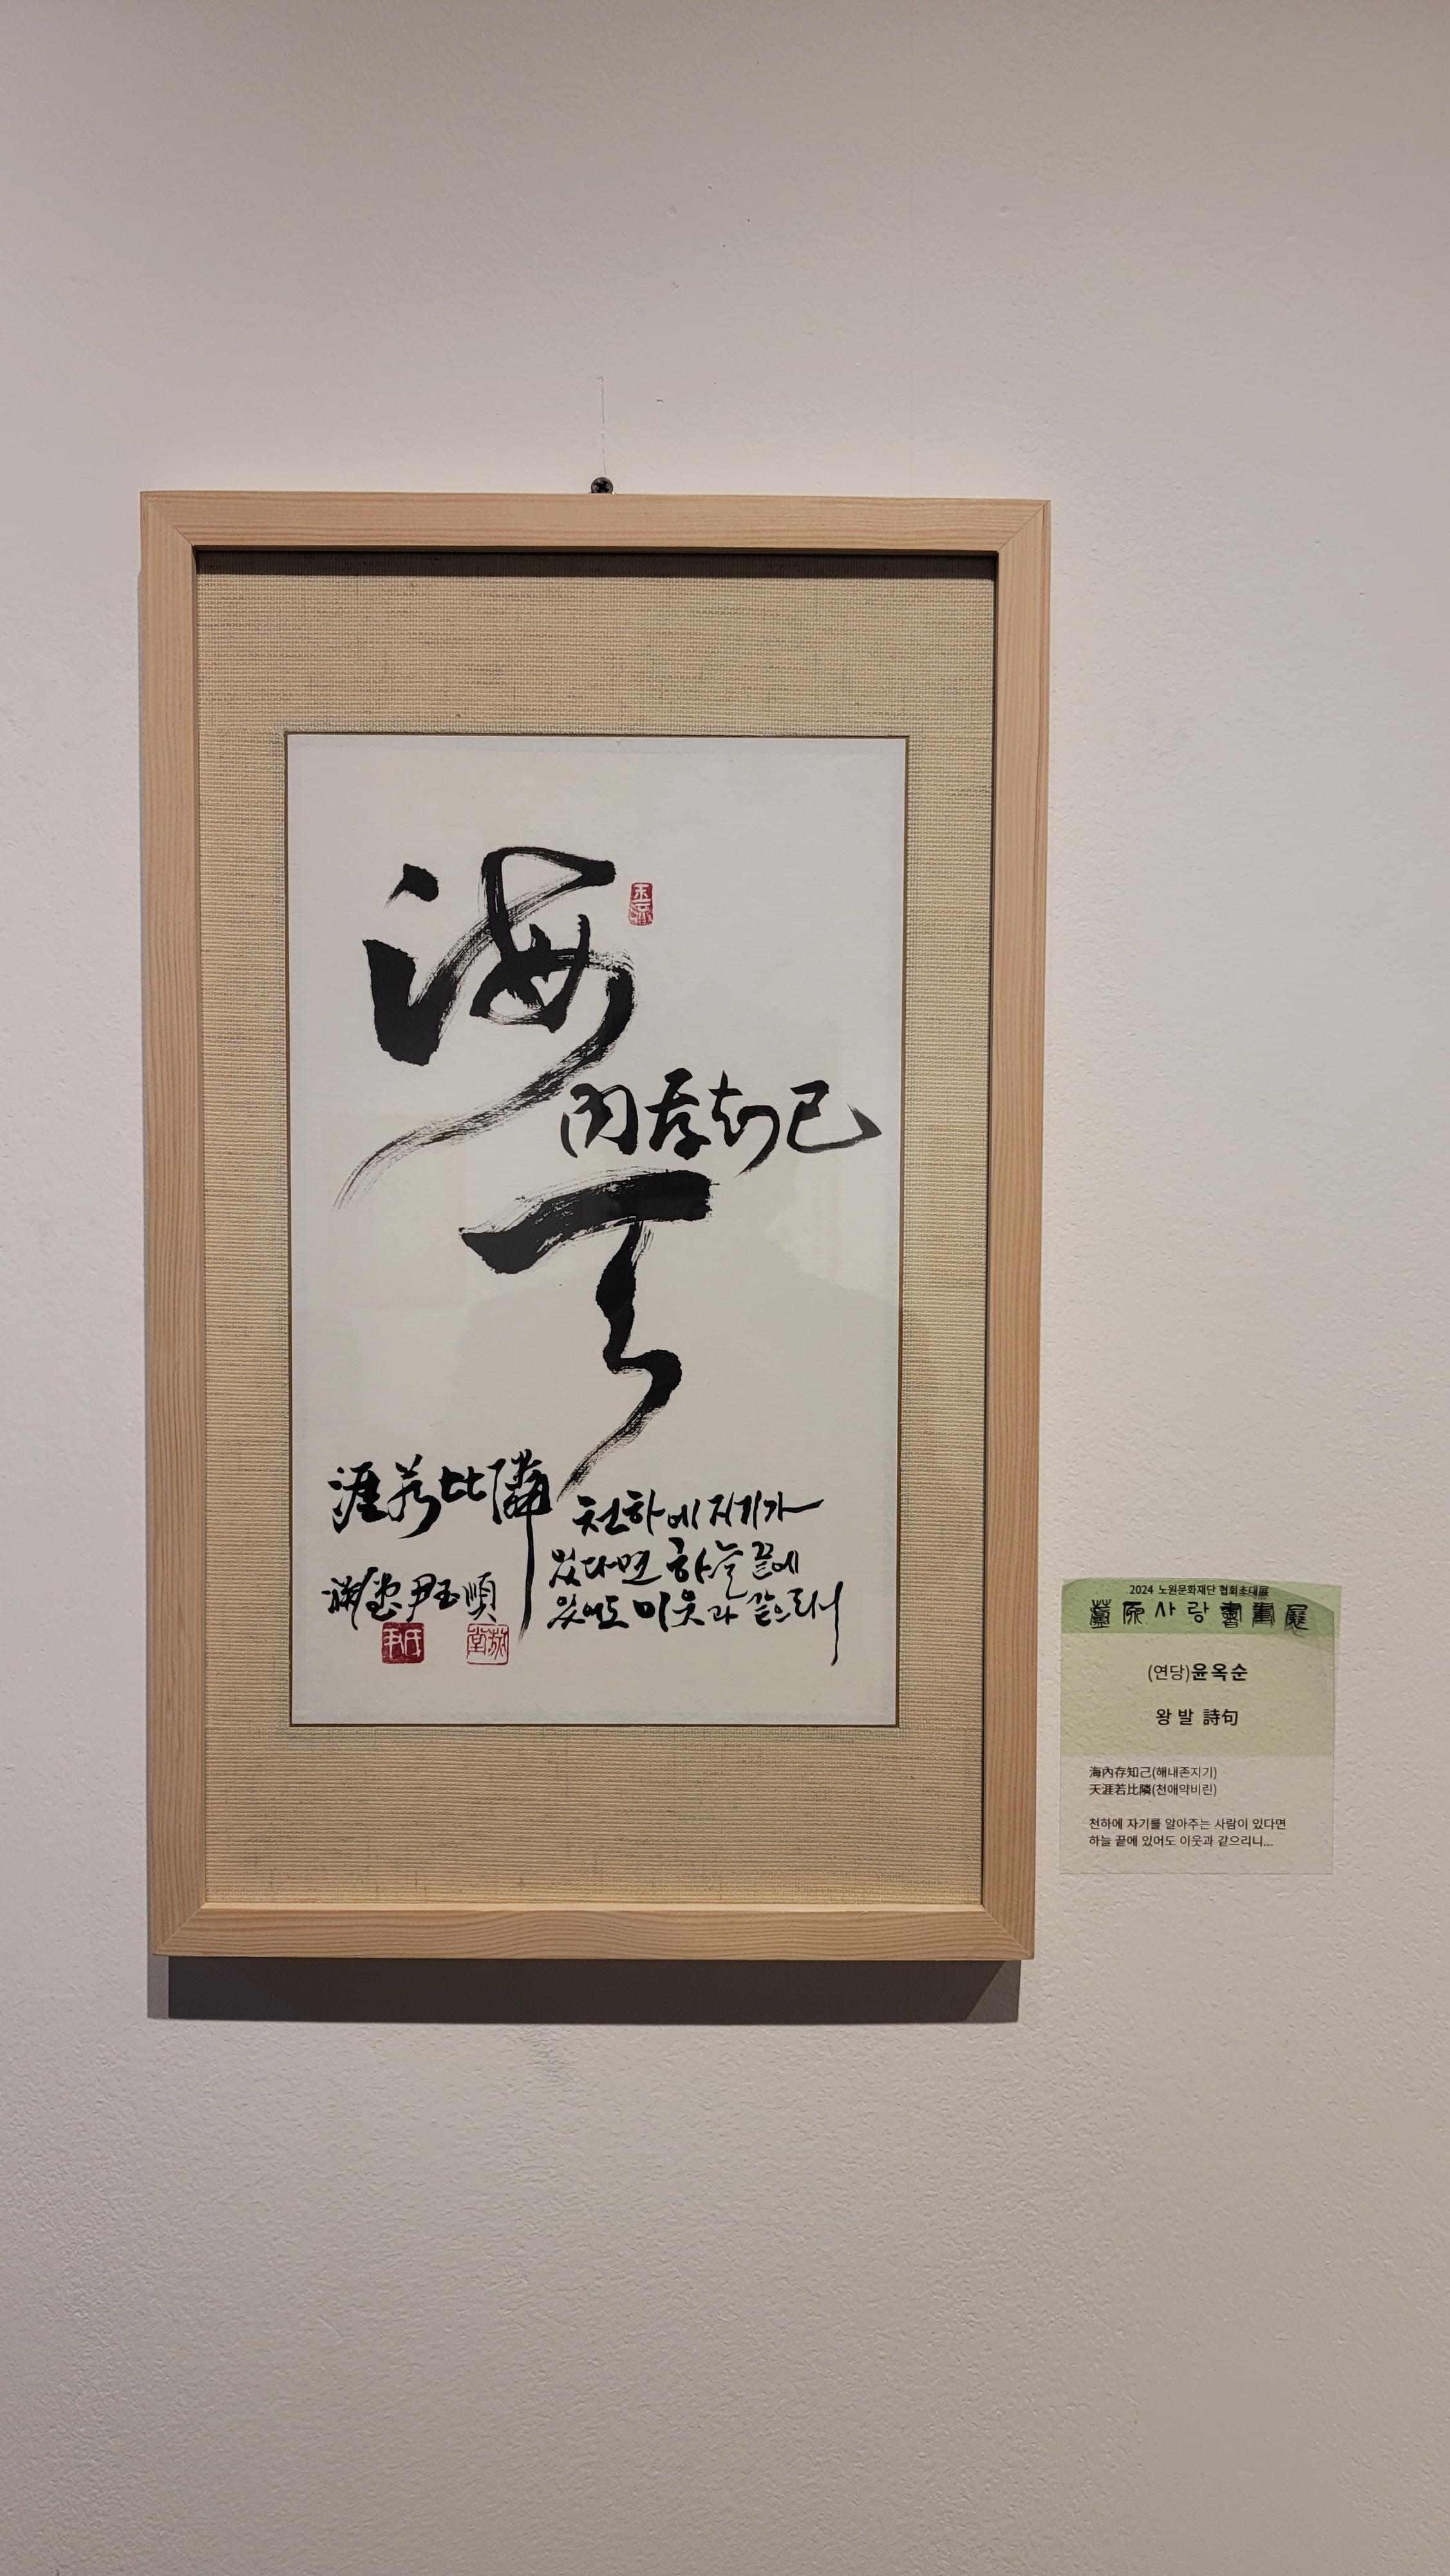 海
內存知己
天
涯若比隣
천하에 지기가
있다면 하늘 끝에
있어도 이웃과 같으리니
堂 尹玉順
尹氏
堂
2024 노원문화재단 협회초대展
蘆原사랑書畫展
(연당)윤옥순
왕발 詩句
海內存知己(해내존지기)
天涯若比隣(천애약비린)
천하에 자기를 알아주는 사람이 있다면
하늘 끝에 있어도 이웃과 같으리니...